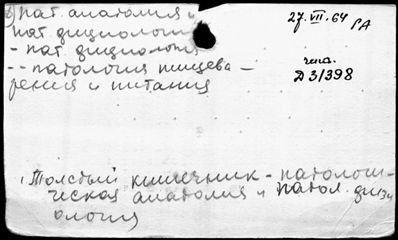 пат. анатомия и
пат. физиология
- пат. физиология
-- патология пищева-
рения и питания
27.VII.64
РА
Д 31398
Толстый кишечник - патологи-
ческая анатомия и патол. физи
ология